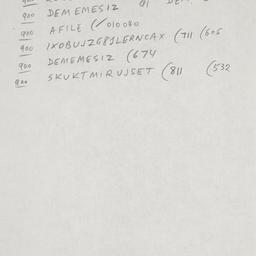 900 DEMEMES1Z
900 AFILE (✓010080
900 1XOBUJZG8JLERNCAX (711 (606
900 DEMEMES1Z (674
900 SKUKTMIRUJSET (811 (532